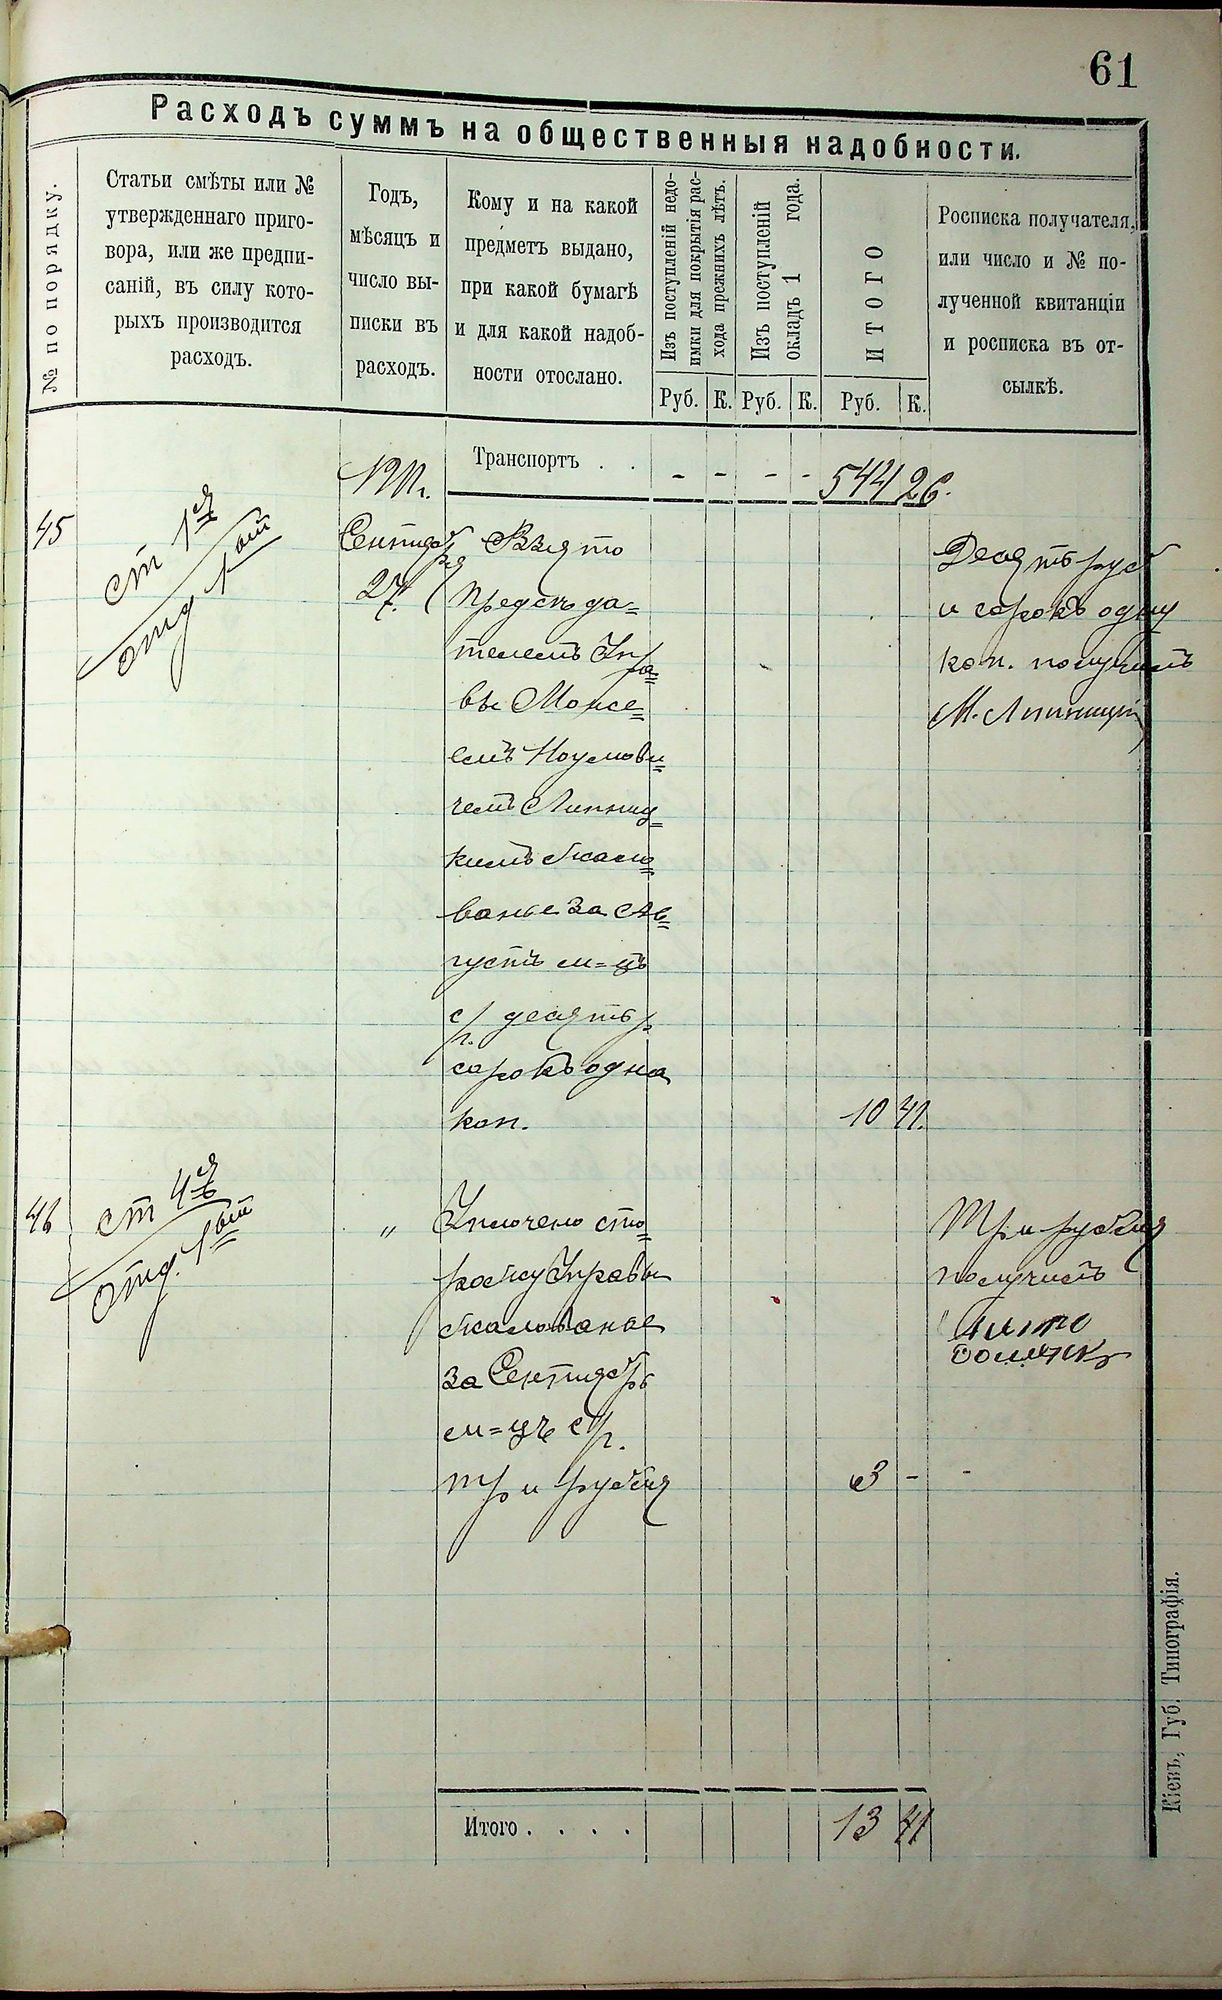 61
Расходъ суммъ на общественныя надобности.
№ по порядку.
Статьи смѣты или №
утвержденнаго приго-
вора, или же предпи-
саній, въ силу кото-
рыхъ производится
расходъ.
Годъ,
мѣсяцъ и
число вы-
писки въ
расходъ.
Кому и на какой
предметъ выдано,
при какой бумагѣ
и для какой надоб-
ности отослано.
Изъ поступленій недо-
имки для покрытія рас-
хода прежнихъ лѣтъ.
Изъ поступленій
окладъ 1 года.
ИТОГО
Росписка получателя,
или число и № по-
лученной квитанціи
и росписка въ от-
сылкѣ.
Руб. К. Руб. К. Руб. К.
1911г. Транспортъ . . - - - - 544 26.
45
ст 1я
отд 1ый
Сентября
27.
Взято
Предсѣда=
телемъ Упра=
вы Моисе=
емъ Наумови=
чемъ Липниц=
кимъ жало=
ванье за Ав=
густъ м=цъ
с/г. десять р.
сорокъ одна
коп. 10 41.
Десять руб
и сорокъ одну
коп. получилъ
М. Липницкій
46
ст 4я
отд. 1ый
„
Уплочено сто=
рожу Управы
жалованье
за Сентябрь
м=цъ с/г.
три рубля 3 - -
Три рубля
получилъ
Итого . . . . 13 41
Кіевъ, Губ. Типографія.